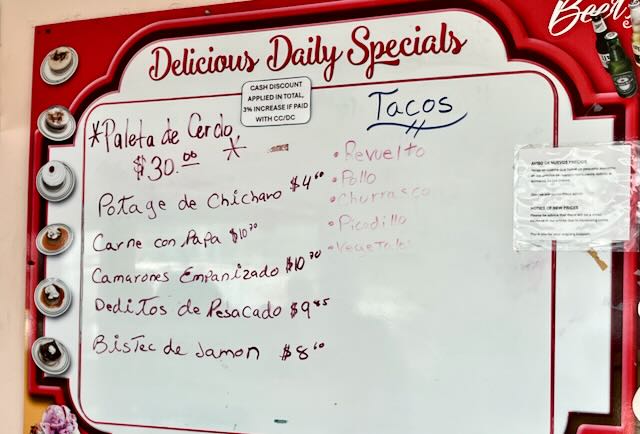 Beers
Delicious Daily Specials
CASH DISCOUNT
APPLIED IN TOTAL,
3% INCREASE IF PAID
WITH CC/DC
*Paleta de Cerdo,
$30.00 *
Potage de Chicharo $4
Carne con Papa $10
Camarones Empanizado $10
Deditos de Pesacado $9
Bistec de Jamon $8
Tacos
• Revuelto
• Pollo
• Churrasco
• Picadillo
• Vegetales
AVISO DE NUEVOS PRECIOS
NOTICE OF NEW PRICES